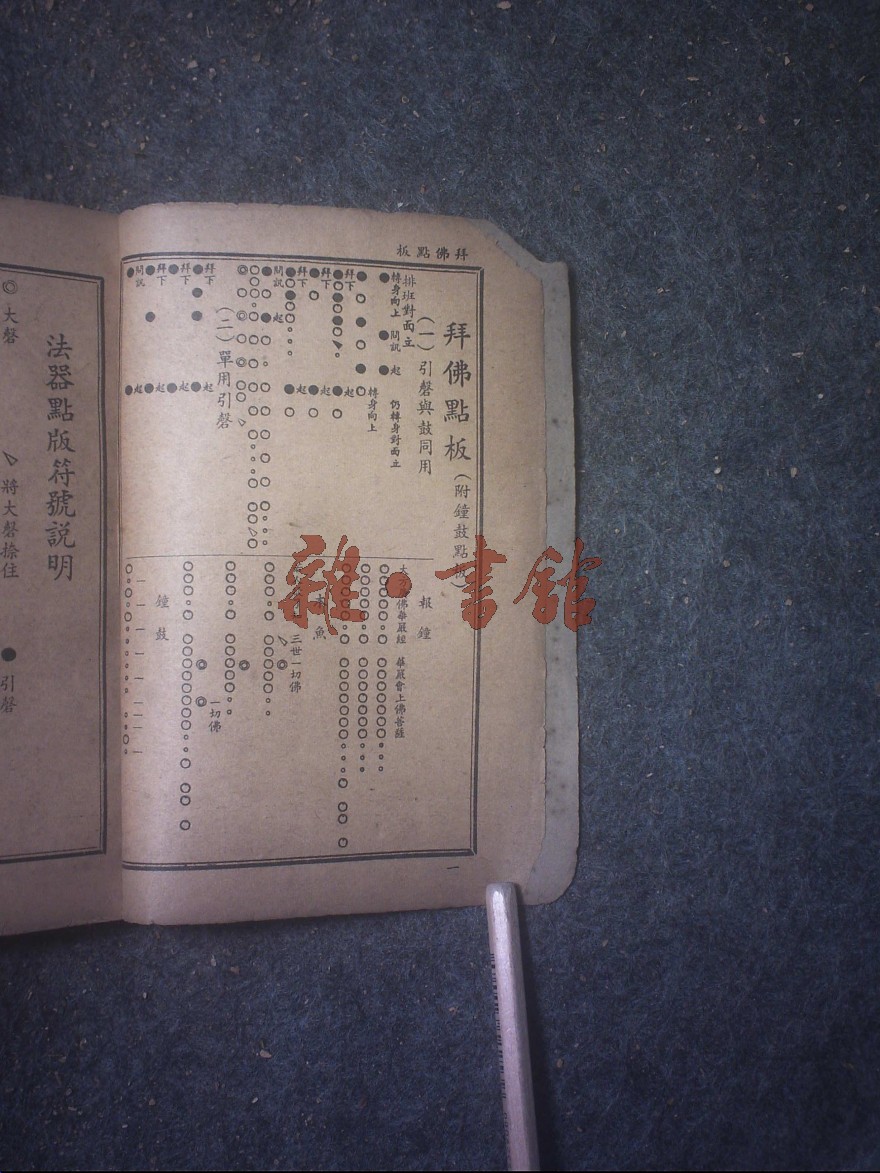 拜佛點板
拜佛點板（附鐘鼓點板）
（一）引磬與鼓同用
排班對面立
●轉身向上 ●問訊 ●起 仍轉身對面立
轉身向上
拜下 起
拜下 起
拜下 起
問訊 起
（二）單用引磬
拜下 起
拜下 起
拜下 起
問訊 起
報鐘
佛華嚴經 華嚴會上佛菩薩
魚
三世一切佛
一切佛
鐘鼓
一
法器點版符號説明
◎大磬 將大磬捺住 ●引磬
雜·書館